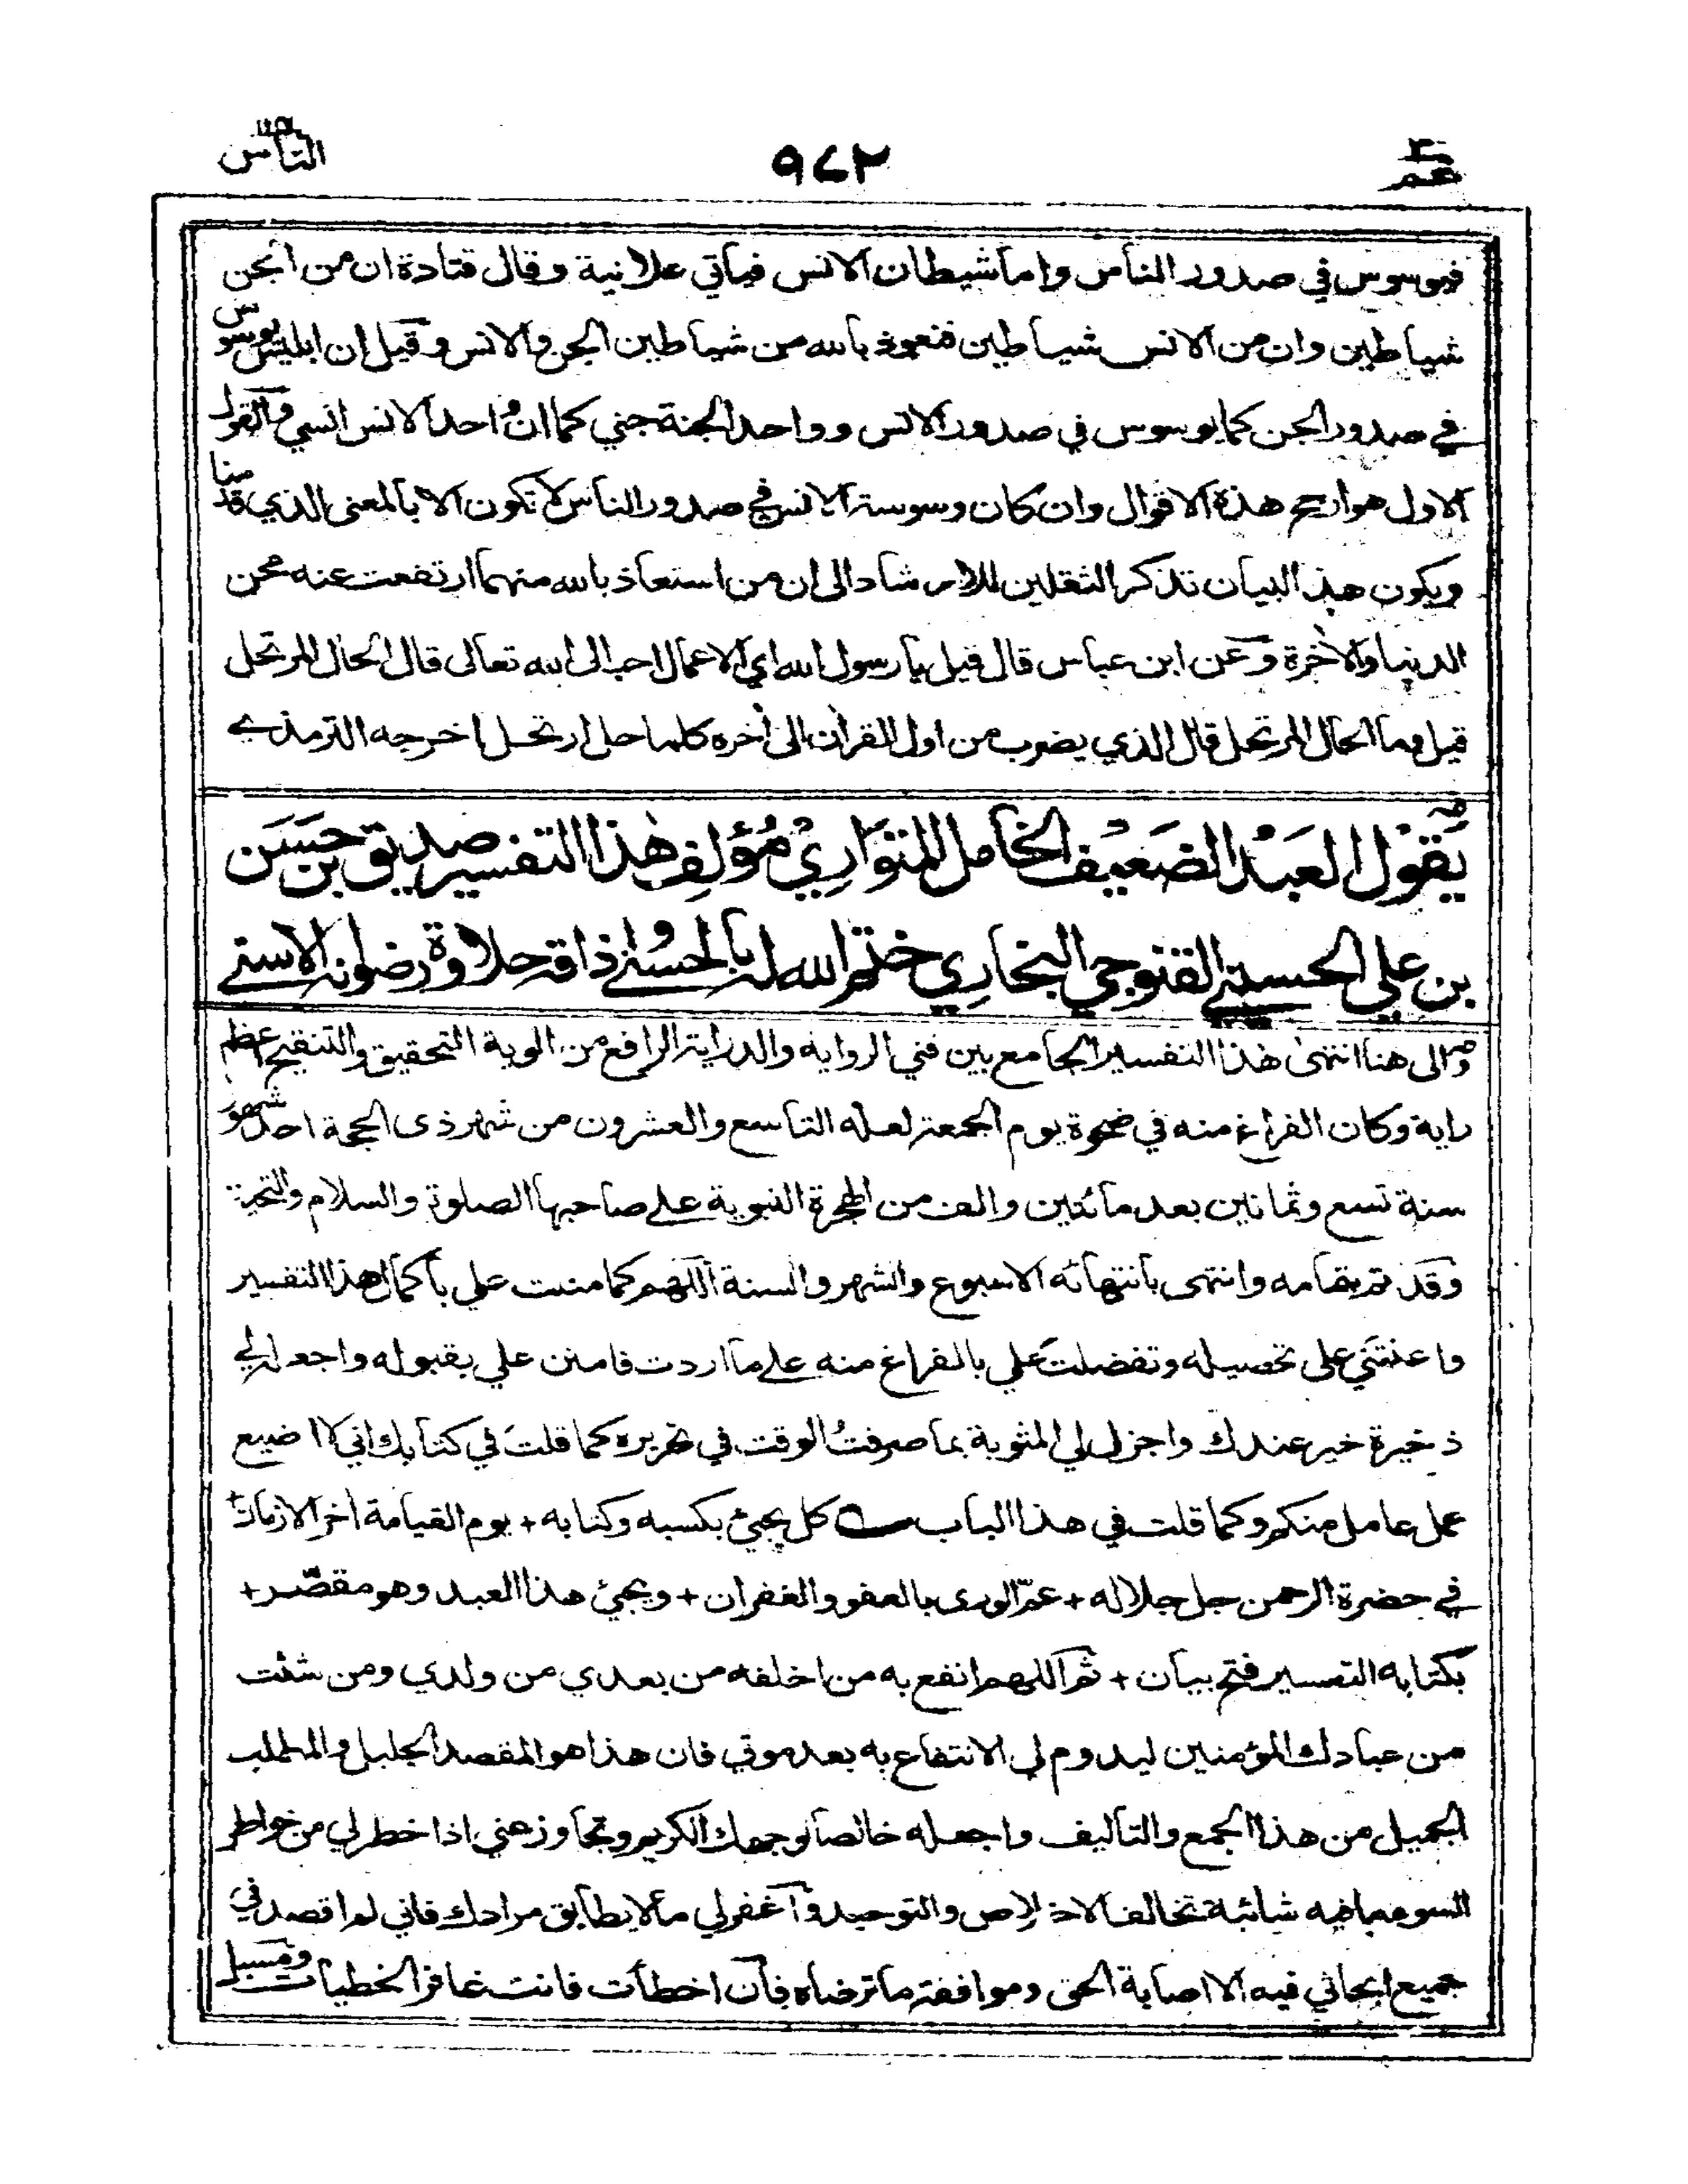 عم ٣٠
٩٤٢
الناس
فيوسوس في صدور الناس واما شيطان الانس فيأتي علانية وقال قتادة ان من الجن
شياطين وان من الانس شياطين فنعوذ بالله من شياطين الجن والانس وقيل ان ابليس يوسوس
في صدور الجن كما يوسوس في صدور الانس وواحد الجنة جني كما ان واحد الانس انسي والقول
الاول هو ارجح هذه الاقوال وان كان وسوسة الانس في صدور الناس لا تكون الا بالمعنى الذي قدمنا
ويكون هذا البيان تذكر الثقلين للارشاد الى ان من استعاذ بالله منهما ارتفعت عنه محن
الدنيا والآخرة وعن ابن عباس قال قيل يا رسول الله اي الاعمال احب الى الله تعالى قال الحال المرتحل
قيل وما الحال المرتحل قال الذي يضرب من اول القرآن الى آخره كلما حل ارتحل اخرجه الترمذي
يَقُوْل العَبْد الضَعِيْف الخامل المتوَارِيْ مُؤلِف هٰذا التفسير صديق بن حَسَن
بن علي الحسيني القنوجي البخارِي ختم الله له بالحُسنى واذاقه حلاوة رضوانه الاسنى
والى هنا انتهىٰ هٰذا التفسير الجامع بين فني الرواية والدراية الرافع من الوية التحقيق والتنقيح اعظم
راية وكان الفراغ منه في ضحوة يوم الجمعة لعله التاسع والعشرون من شهر ذى الحجة احد شهور
سنة تسع وثمانين بعد مائتين والف من الهجرة النبوية على صاحبها الصلوة والسلام والتحية
وقد تم بتمامه وانتهى بانتهائه الاسبوع والشهر والسنة اللهم كما مننت علي باكمال هذا التفسير
واعنتني على تحصيله وتفضلت علي بالفراغ منه على ما اردت فامنن علي بقبوله واجعله لي
ذخيرة خير عندك واجزل لي المثوبة بما صرفتُ الوقت في تحريره كما قلتَ في كتابك اني لا اضيع
عمل عامل منكم وكما قلت في هذا الباب كل يجئ بكسبه وكتابه + يوم القيامة آخر الازمان +
في حضرة الرحمن جل جلاله + عمّ الورى بالعفو والغفران + ويجئ هذا العبد وهو مقصّر +
بكتابه التفسير فتح بيان + ثم اللهم انفع به من اخلفه من بعدي من ولدي ومن شئت
من عبادك المؤمنين ليدوم لي الانتفاع به بعد موتي فان هذا هو المقصد الجليل والمطلب
الجميل من هذا الجمع والتأليف واجعله خالصا لوجهك الكريم وتجاوز عني اذا خطر لي من خواطر
السوء مما فيه شائبة تخالف الاخلاص والتوحيد واغفر لي ما لا يطابق مرادك فاني لم اقصد في
جميع ابحاثي فيه الا اصابة الحق وموافقة ما ترضاه فان اخطأت فانت غافر الخطيات ومسبل